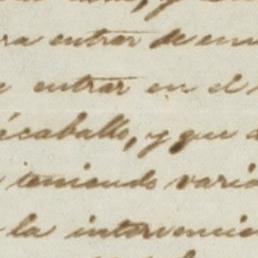 ra entrar de
entrar en el
acaballo, y que
teniendo vari
la intervenci